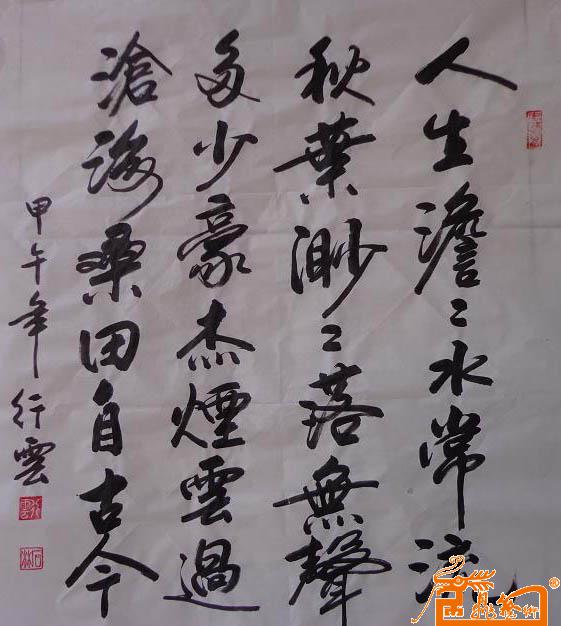 人生澹〻水常流
秋葉渺〻落無聲
多少豪杰煙雲過
滄海桑田自古今
甲午年行雲